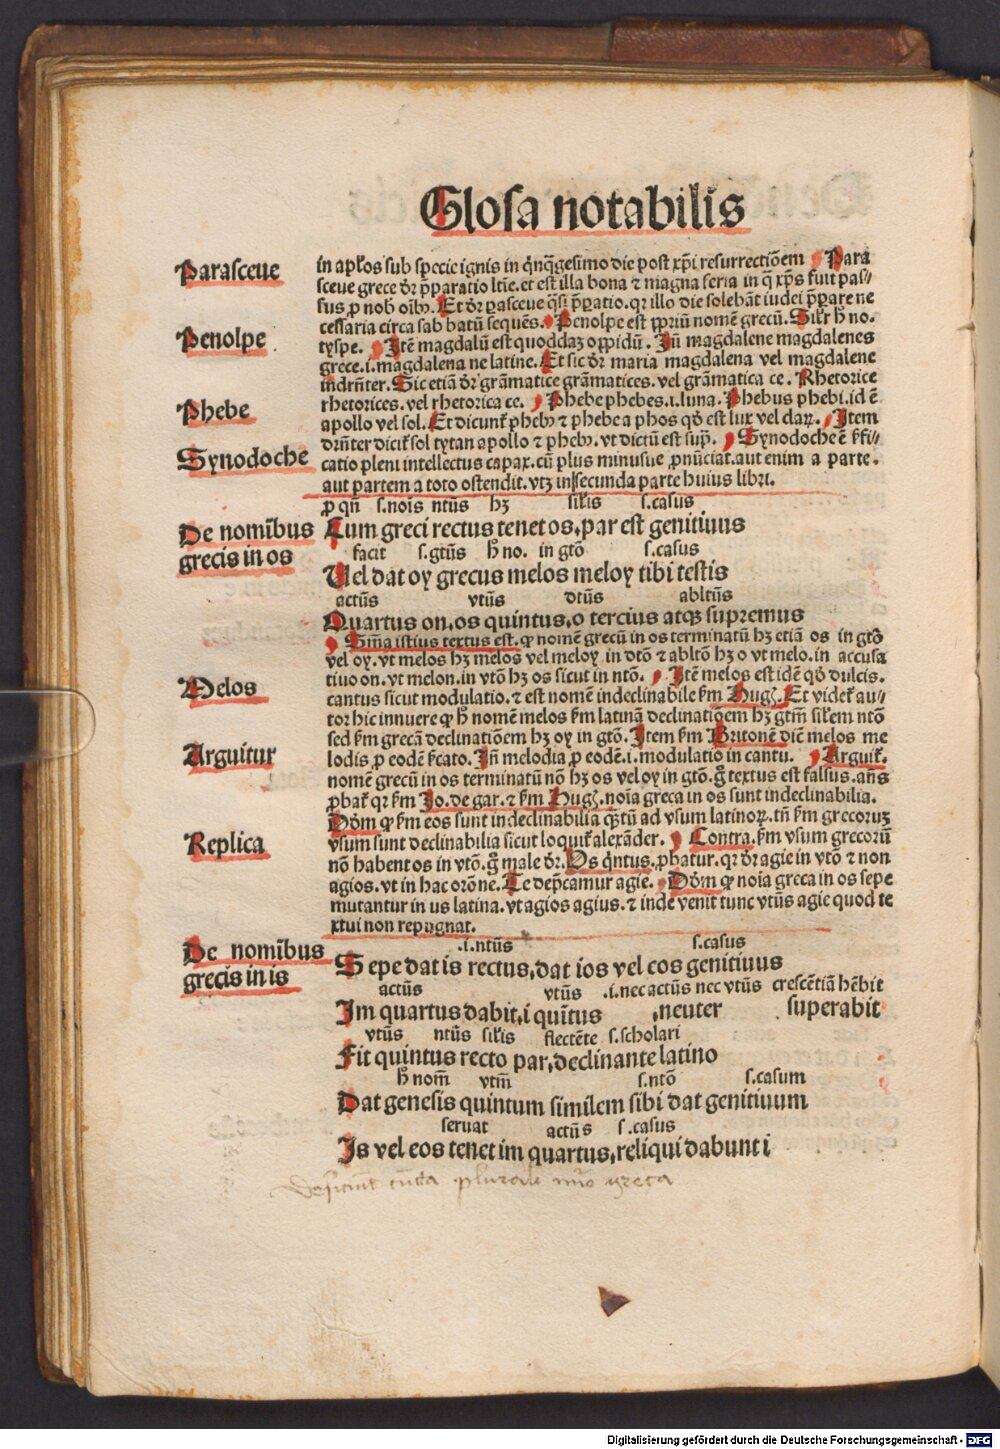 Glosa notabilis
Parasceue
in apłos sub specie ignis in q̃nq̃gesimo die post xp̃i resurrectiõem Para
sceue grece dr̃ p̃paratio ltĩe. et est illa bona ⁊ magna feria in q̃ xp̃s fuit pas⸗
sus ꝓ nob oĩbꝰ. Et dr̃ ꝑasceue q̃si p̃patio. qr illo die solebãt iudei p̃parare ne
cessaria circa sabbatũ sequẽs. Penolpe est ꝓpriũ nomẽ grecũ. Silr̃ h̃ no.
Penolpe
tyspe. Itẽ magdalũ est quoddaȝ oppidũ. Iñ magdalene magdalenes
grece. i. magdalena ne latine. Et sic dr̃ maria magdalena vel magdalene
indrñter. Sic etiã dr̃ grãmatice grãmatices. vel grãmatica ce. Rhetorice
Phebe
rhetorices. vel rhetorica ce. Phebe phebes. i. luna. Phebus phebi. id ẽ
apollo vel sol. Et dicunt̃ phebꝰ ⁊ phebe a phos qđ est lux vel daꝝ. Item
drñter dicit̃ sol tytan apollo ⁊ phebꝰ. vt dictũ est sup̃. Synodoche ẽ k̃fi⸗
Synodoche
catio pleni intellectus capax. cũ plus minusue ꝓnũciat. aut enim a parte.
aut partem a toto ostendit. vtȝ in secunda parte huius libri.
ꝓ qñ s. noĩs ntũs hȝ sil̃is s. casus
De nomĩbus
grecis in os
Cum greci rectus tenet os, par est genitiuus
facit s. gtũs h̃ no. in gtõ s. casus
Uel dat oy grecus melos meloy tibi testis
actũs vtũs dtũs abltũs
Quartus on, os quintus, o tercius atqꝫ supremus
Sm̃a istius textus est. ꝙ nomẽ grecũ in os terminatũ hȝ etiã os in gtõ
vel oy. vt melos hȝ melos vel meloy in dtõ ⁊ abltõ hȝ o vt melo. in accusa
Melos
tiuo on. vt melon. in vtõ hȝ os sicut in ntõ. Itẽ melos est idẽ qđ dulcis.
cantus sicut modulatio. ⁊ est nomẽ indeclinabile k̃m Hugȝ. Et videt̃ au⸗
tor hic innuere ꝙ h̃ nomẽ melos k̃m latinã declinatiõem hȝ gtm̃ sil̃em ntõ
sed k̃m grecã declinatiõem hȝ oy in gtõ. Item k̃m Britonẽ dic̃ melos me
Arguitur
lodis, ꝓ eodẽ k̃cato. Iñ melodia ꝓ eodẽ. i. modulatio in cantu. Arguit̃.
nomẽ grecũ in os terminatũ nõ hȝ os vel oy in gtõ. g̃ textus est falsus. añs
ꝓbat̃ qr k̃m Jo. de gar. ⁊ k̃m Hugȝ. noĩa greca in os sunt indeclinabilia.
Dõm ꝙ k̃m eos sunt indeclinabilia q̃ꝫtũ ad vsum latinoꝝ. tñ k̃m grecoruȝ
Replica
vsum sunt declinabilia sicut loquit̃ alexãder. Contra. k̃m vsum grecorũ
nõ habent os in vtõ. g̃ male dr̃. Os q̃ntus. ꝓbatur. qr dr̃ agie in vtõ ⁊ non
agios. vt in hac orõne. Te dep̃camur agie. Dõm ꝙ noĩa greca in os sepe
mutantur in us latina. vt agios agius. ⁊ inde venit tunc vtũs agie quod te
xtui non repugnat.
.i. ntũs s. casus
De nomĩbus
grecis in is
Sepe dat is rectus, dat ios vel eos genitiuus
actũs vtũs .i. nec actũs nec vtũs crescẽtiã hẽbit
Im quartus dabit, i quĩtus , neuter superabit
vtũs ntũs sil̃is flectẽte s. scholari
Fit quintus recto par, declinante latino
h̃ nom̃ vtm̃ s. ntõ s. casum
Dat genesis quintum similem sibi dat genitiuum
seruat actũs s. casus
Is vel eos tenet im quartus, reliqui dabunt i
Deficiunt cũcta plurali nũo greca
Digitalisierung gefördert durch die Deutsche Forschungsgemeinschaft - DFG